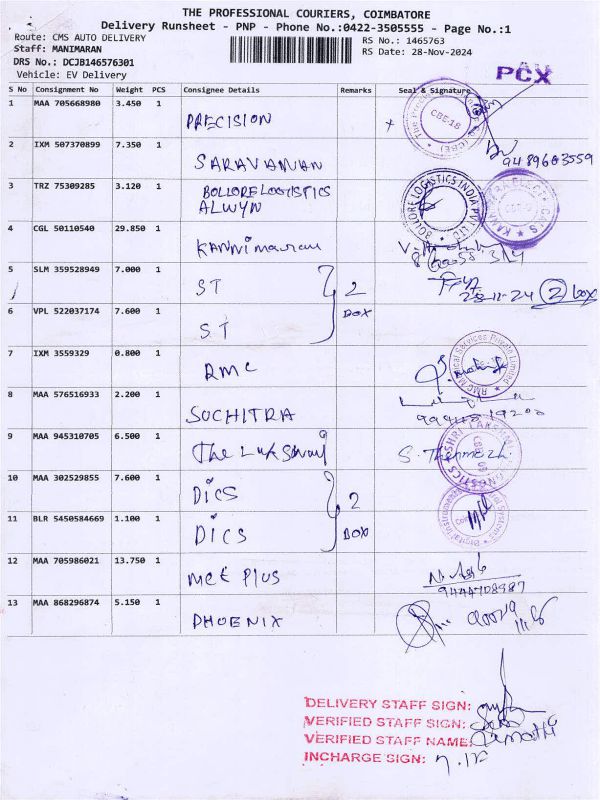 THE PROFESSIONAL COURIERS, COIMBATORE
Delivery Runsheet - PNP - Phone No.:0422-3505555 - Page No.:1
Route: CMS AUTO DELIVERY
RS No.: 1465763
Staff: MANIMARAN
RS Date: 28-Nov-2024
DRS No.: DCJB146576301
Vehicle: EV Delivery
PCX
S No Consignment No Weight PCS Consignee Details Remarks Seal & Signature
1 MAA 705668980 3.450 1 PRECISION
CBE18
2 IXM 507370899 7.350 1 SARAVANAN
9489603559
3 TRZ 75309285 3.120 1 BOLLORE LOGISTICS
ALWYN
BOLLORE LOGISTICS INDIA PVT LTD
4 CGL 50110540 29.850 1 KANNimaran
5 SLM 359528949 7.000 1 ST 2
BOX
28-11-24 2 box
6 VPL 522037174 7.600 1 ST
7 IXM 3559329 0.800 1 RMC
RMC Medical Services Private Limited
8 MAA 576516933 2.200 1 SUCHITRA
9 MAA 945310705 6.500 1 The
10 MAA 302529855 7.600 1 DICS 2
BOX
11 BLR 5450584669 1.100 1 DICS
12 MAA 705986021 13.750 1 MCE PLUS
13 MAA 868296874 5.150 1 PHOENIX
DELIVERY STAFF SIGN:
VERIFIED STAFF SIGN:
VERIFIED STAFF NAME:
INCHARGE SIGN: